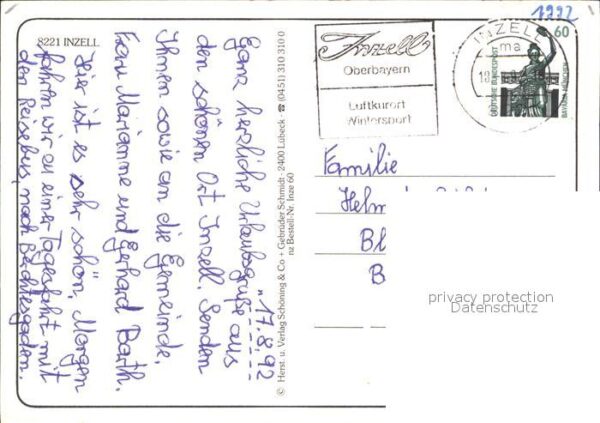 8221 INZELL
1992
Inzell
Oberbayern
Luftkurort
Wintersport
INZELL
ma
60
DEUTSCHE BUNDESPOST
BAVARIA MÜNCHEN
"17.8.92
Ganz herzliche Urlaubsgrüße aus
den schönen Ort Inzell. Senden
Ihnen sowie an die Gemeinde,
Frau Marianne und Gerhard Barth.
Hier ist es sehr schön, Morgen
fahren wir an einer Tagesfahrt mit
den Reisebus nach Berchtesgaden.
© Herst. u. Verlag Schöning & Co + Gebrüder Schmidt · 2400 Lübeck · ☎ (04 51) 310 310 0
nz Bestell-Nr. Inze 60
Familie
Helm
Bl
B
privacy protection
Datenschutz